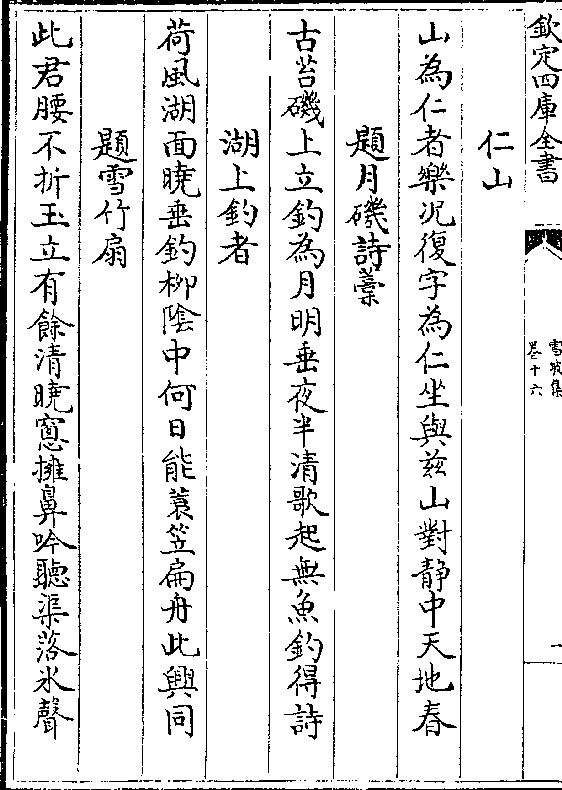 欽定四庫全書
雪坡集
卷十六
一
仁山
山為仁者樂況復字為仁坐與兹山對静中天地春
題月磯詩藁
古苔磯上立釣為月明垂夜半清歌起無魚釣得詩
湖上釣者
荷風湖面曉垂釣柳陰中何日能蓑笠扁舟此興同
題雪竹扇
此君腰不折玉立有餘清曉窻擁鼻吟聽渠落氷聲